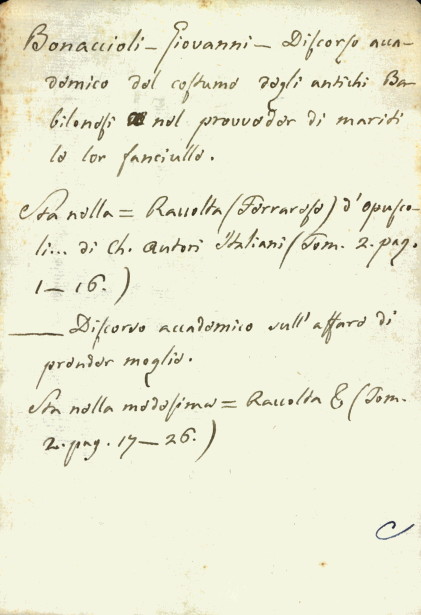 Bonaccioli - Giovanni - Discorso acca-
demico del costume degli antichi Ba-
bilonesi nel provveder di mariti
le lor fanciulle.
Sta nella = Raccolta (Ferrarese) d'opusco-
li... di Ch. Autori Italiani (Tom. 2. pag.
1 - 16.)
— Discorso accademico sull'affare di
prender moglie.
Sta nella medesima = Raccolta & (Tom.
2. pag. 17 - 26.)
C